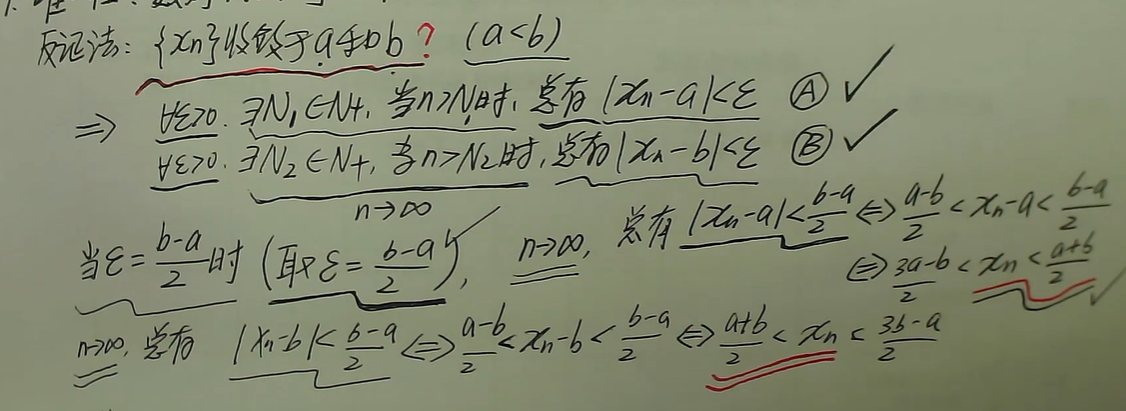 反证法: {xn}收敛于a和b? (a<b)
⇒ ∀ε>0. ∃N₁∈N+, 当n>N₁时, 总有|xn-a|<ε Ⓐ✓
∀ε>0. ∃N₂∈N+, 当n>N₂时, 总有|xn-b|<ε Ⓑ✓
n→∞
当ε=(b-a)/2时 (取ε=(b-a)/2)✓, n→∞, 总有|xn-a|<(b-a)/2 ⇔ (a-b)/2<xn-a<(b-a)/2
⇔ (3a-b)/2<xn<(a+b)/2 ✓
n→∞, 总有 |xn-b|<(b-a)/2 ⇔ (a-b)/2<xn-b<(b-a)/2 ⇔ (a+b)/2<xn<(3b-a)/2